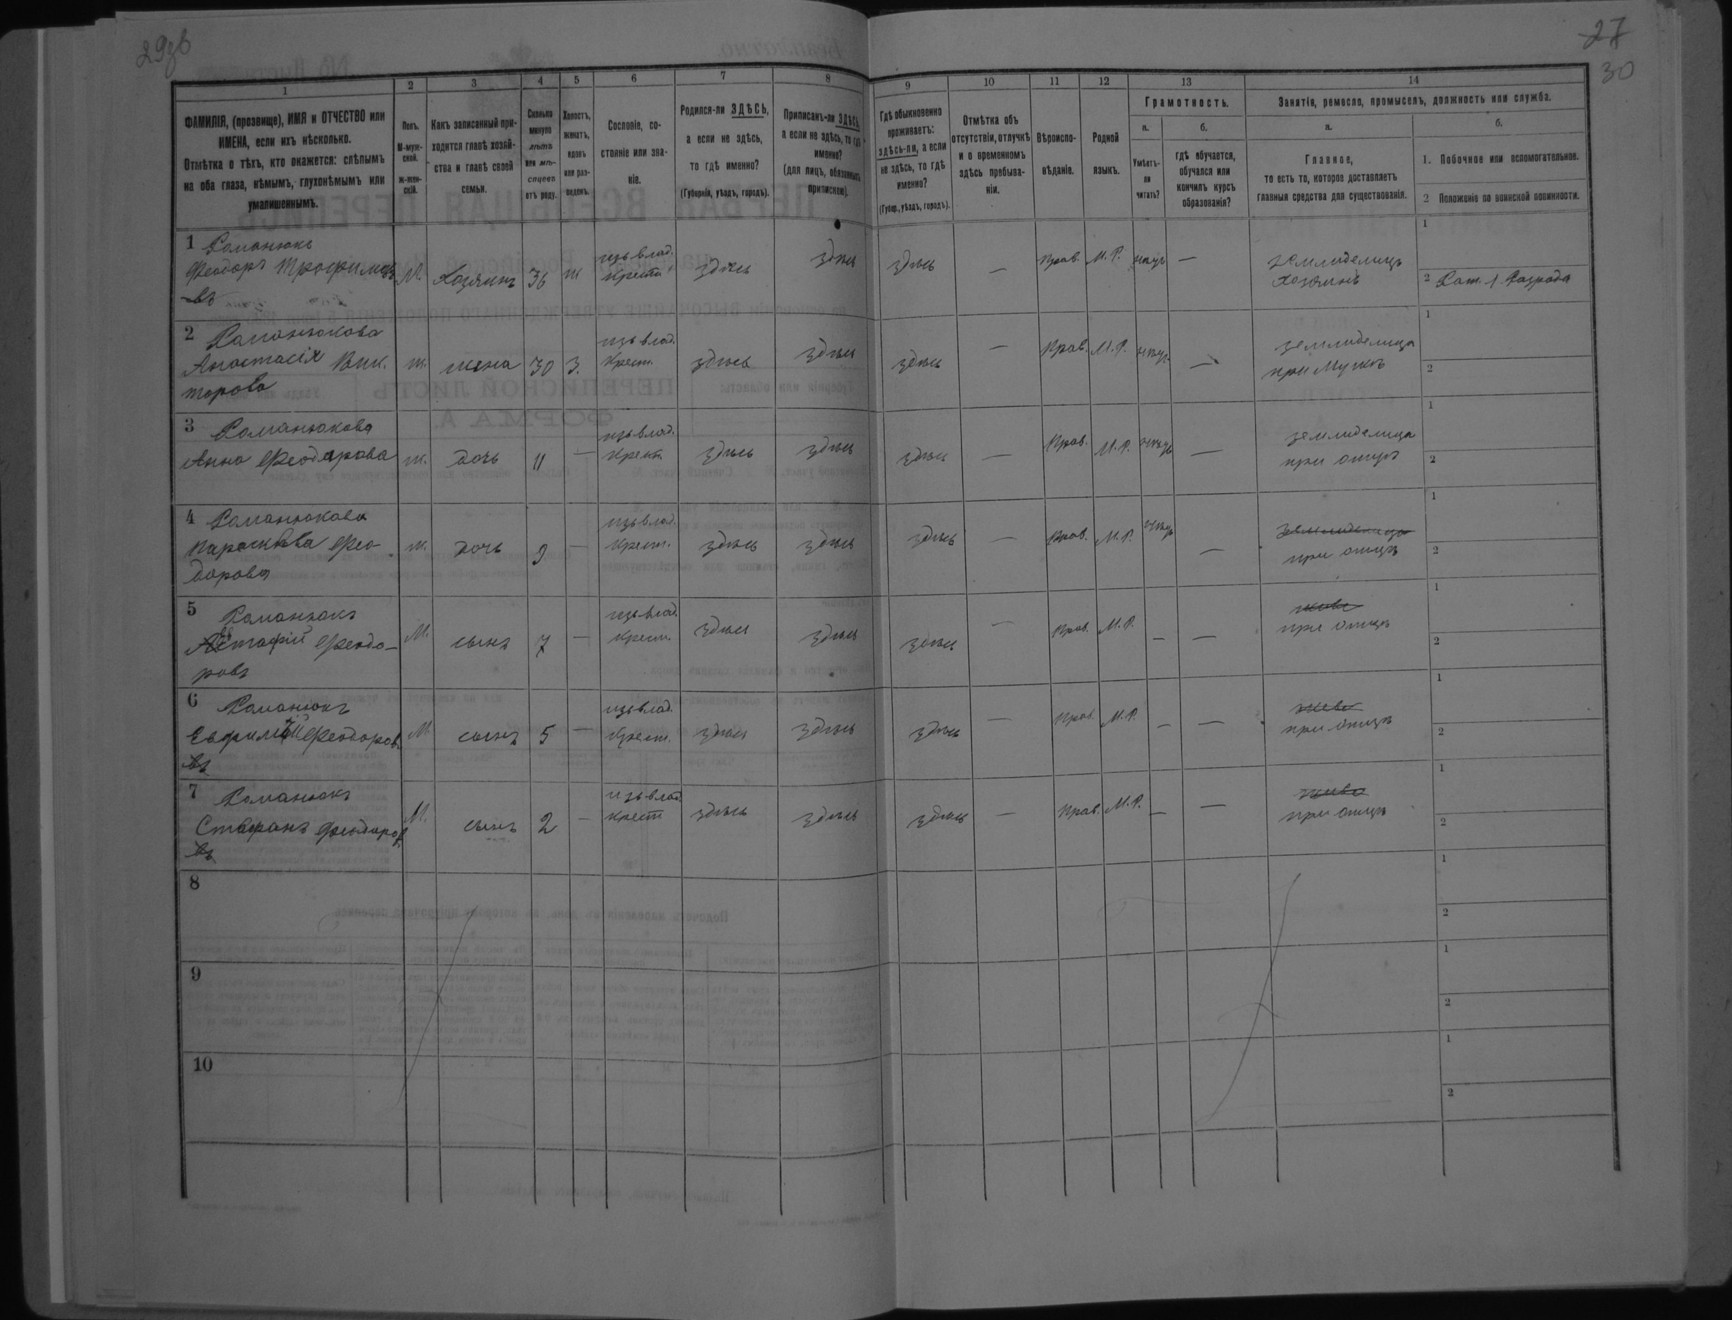 29об
27
30
1
2
3
4
5
6
7
8
9
10
11
12
13
14
ФАМИЛІЯ, (прозвище), ИМЯ и ОТЧЕСТВО или
ИМЕНА, если ихъ нѣсколько.
Отмѣтка о тѣхъ, кто окажется: слѣпымъ
на оба глаза, нѣмымъ, глухонѣмымъ или
умалишеннымъ.
Полъ.
М-муж-
ской.
ж-жен-
скій.
Какъ записанный при-
ходится главѣ хозяй-
ства и главѣ своей
семьи.
Сколько
минуло
лѣтъ
или мѣ-
сяцевъ
отъ роду.
Холостъ,
женатъ,
вдовъ
или раз-
веденъ.
Сословіе, со-
стояніе или зва-
ніе.
Родился-ли ЗДѢСЬ,
а если не здѣсь,
то гдѣ именно?
(Губернія, уѣздъ, городъ).
Приписанъ-ли ЗДѢСЬ,
а если не здѣсь, то гдѣ
именно?
(для лицъ, обязанныхъ
припискою).
Гдѣ обыкновенно
проживаетъ:
здѣсь-ли, а если
не здѣсь, то гдѣ
именно?
(Губер., уѣздъ, городъ).
Отмѣтка объ
отсутствіи, отлучкѣ
и о временномъ
здѣсь пребыва-
ніи.
Вѣроиспо-
вѣданіе.
Родной
языкъ.
Грамотность.
а.
Умѣетъ-
ли
читать?
б.
Гдѣ обучается,
обучался или
кончилъ курсъ
образованія?
Занятія, ремесло, промыселъ, должность или служба.
а.
Главное,
то есть то, которое доставляетъ
главныя средства для существованія.
б.
1. Побочное или вспомогательное.
2 Положеніе по воинской повинности.
1 Романюкъ
Феодоръ Трофимов
въ
М. Хозяинъ 36 ж
изъ влад.
Крест.
здѣсь здѣсь здѣсь — Прав. М.Р. —
земледелецъ
хозяинъ
1
2 Рат. 1 Разряда
2 Романюкова
Анастасія Вик-
торова
ж. жена 30 З.
изъ влад.
Крест.
здѣсь здѣсь здѣсь — Прав. М.Р. —
земледелица
при Мужѣ
1
2
3 Романюкова
Анна Феодорова
ж. дочь 11 —
изъ влад.
Крест.
здѣсь здѣсь здѣсь — Прав. М.Р. —
земледелица
при отцѣ
1
2
4 Романюкова
Параскева Фео-
дорова
ж. дочь 9 —
изъ влад.
Крест.
здѣсь здѣсь здѣсь — Прав. М.Р. —
земледелица
при отцѣ
1
2
5 Романюкъ
Феодо-
ровъ
М. сынъ 7 —
изъ влад.
Крест.
здѣсь здѣсь здѣсь — Прав. М.Р. — —
при отцѣ
1
2
6 Романюкъ
Евфимій Феодоров
въ
М. сынъ 5 —
изъ влад.
Крест.
здѣсь здѣсь здѣсь — Прав. М.Р. — —
при отцѣ
1
2
7 Романюкъ
Стефанъ Феодоров
въ
М. сынъ 2 —
изъ влад.
Крест
здѣсь здѣсь здѣсь — Прав. М.Р. — —
при отцѣ
1
2
8
1
2
9
1
2
10
1
2